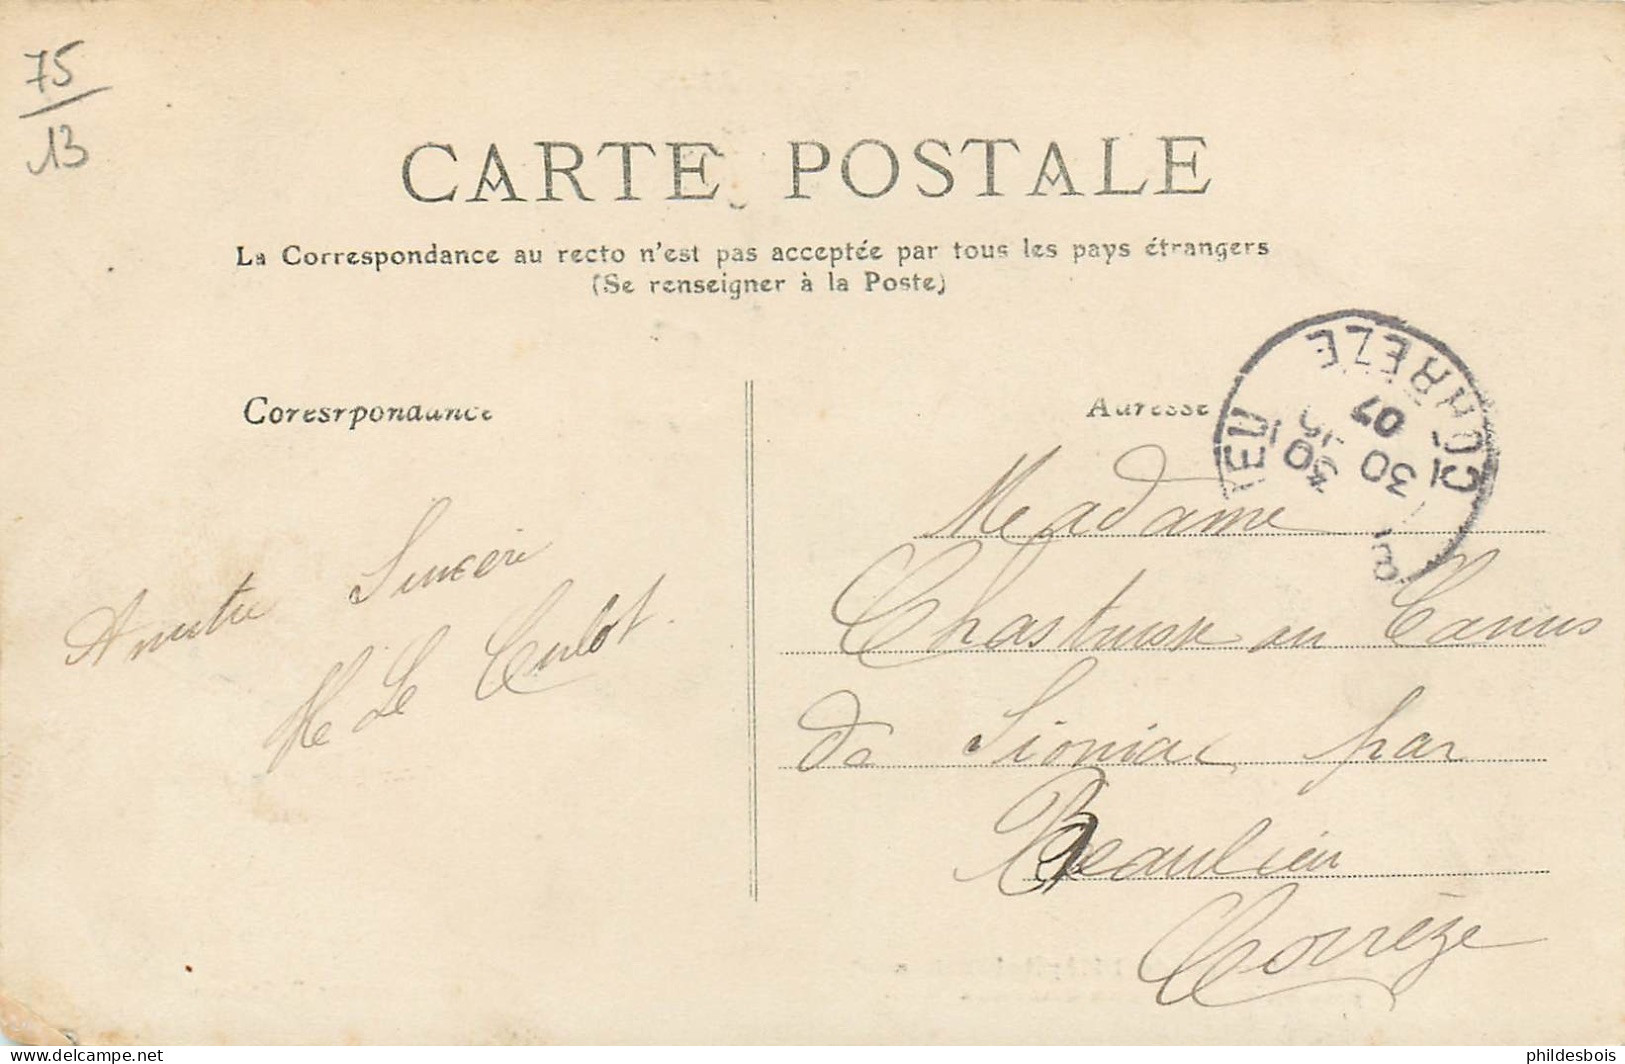 75
13
CARTE POSTALE
La Correspondance au recto n'est pas acceptée par tous les pays étrangers
(Se renseigner à la Poste)
Coresrpondance
Adresse
CORREZE
30
30
07
Madame
au Camus
de Sioniac par
Beaulieu
Corrèze
Amitié Sincère
Le Culot
delcampe.net
phildesbois